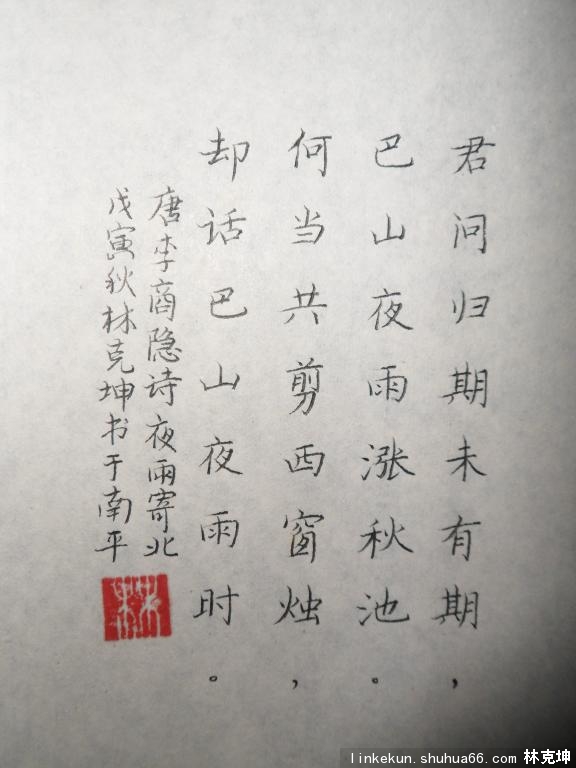 君问归期未有期，
巴山夜雨涨秋池。
何当共剪西窗烛，
却话巴山夜雨时。
唐李商隐诗夜雨寄北
戊寅秋林克坤书于南平
林
linkekun.shuhua66.com 林克坤